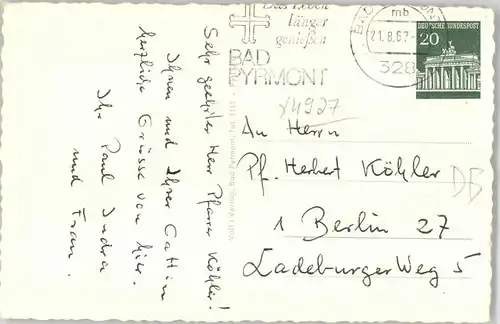 Das Leben
länger
genießen
BAD
PYRMONT
mb
21.8.67-
328
DEUTSCHE BUNDESPOST
20
x4927
An Herrn
Pf. Herbert Köhler
1 Berlin 27
Ladeburger Weg 5
DB
Sehr geehrter Herr Pfarrer Köhler!
Ihnen und Ihrer Gattin
herzliche Grüsse von hier.
Ihr Paul
und Frau.